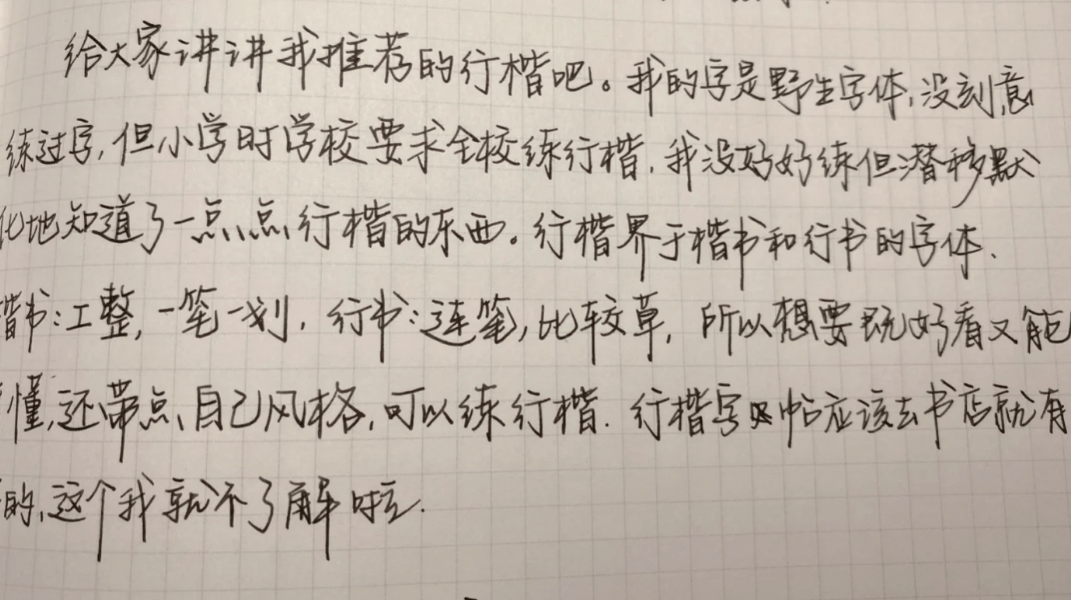 给大家讲讲我推荐的行楷吧。我的字是野生字体,没刻意
练过字,但小学时学校要求全校练行楷,我没好好练但潜移默
化地知道了一点点行楷的东西。行楷界于楷书和行书的字体.
楷书:工整,一笔一划.行书:连笔,比较草,所以想要既好看又能
懂,还带点自己风格,可以练行楷.行楷字帖应该去书店就有
的,这个我就不了解啦.